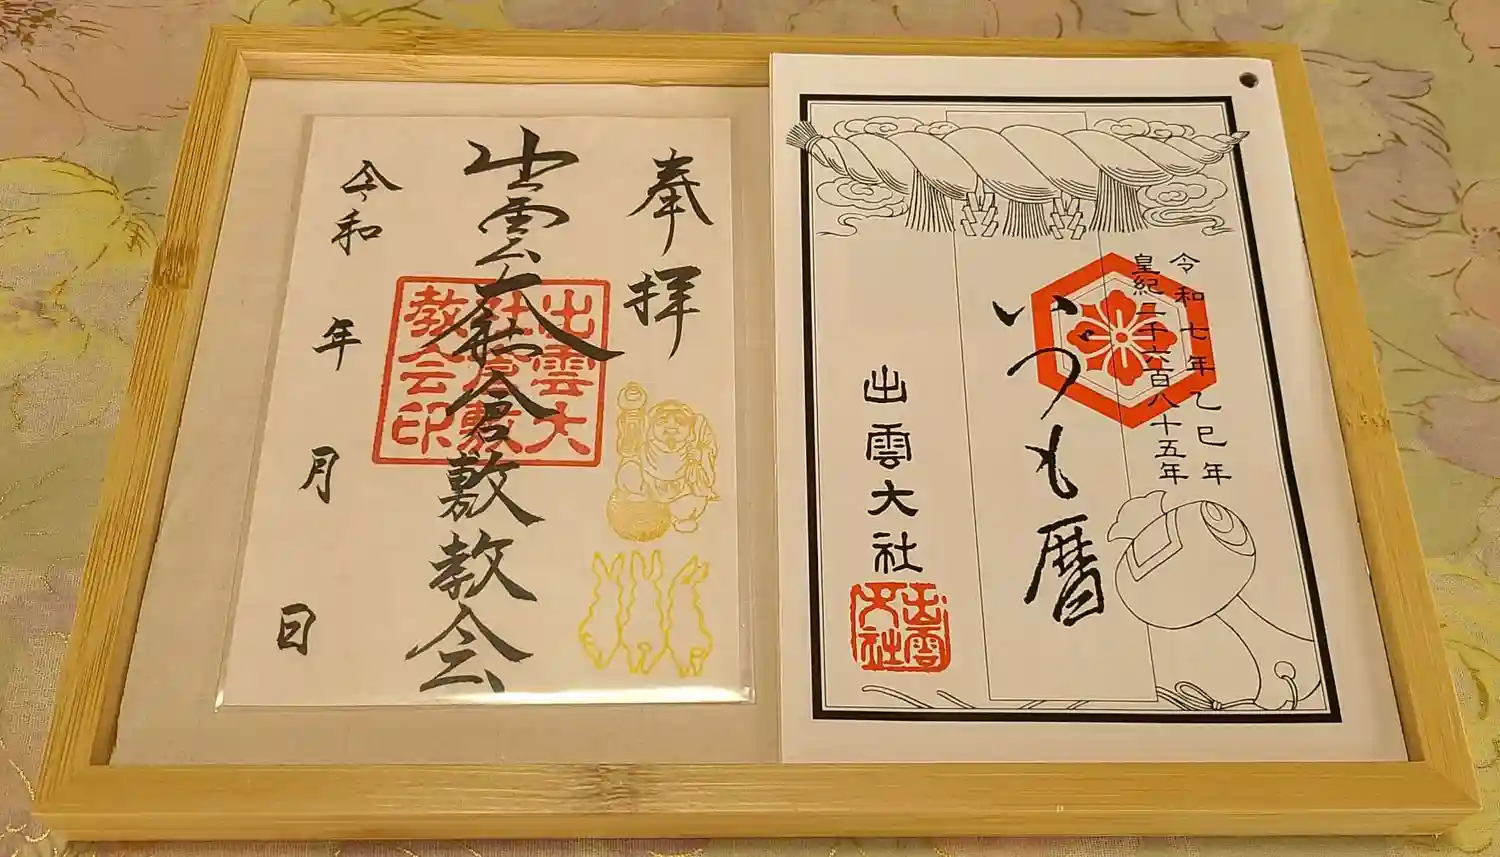 奉拝
出雲大社倉敷教会
令和 年 月 日
出雲大
社倉敷
教会印
令和七年乙巳年
皇紀二千六百八十五年
いづも暦
出雲大社
出雲
大社